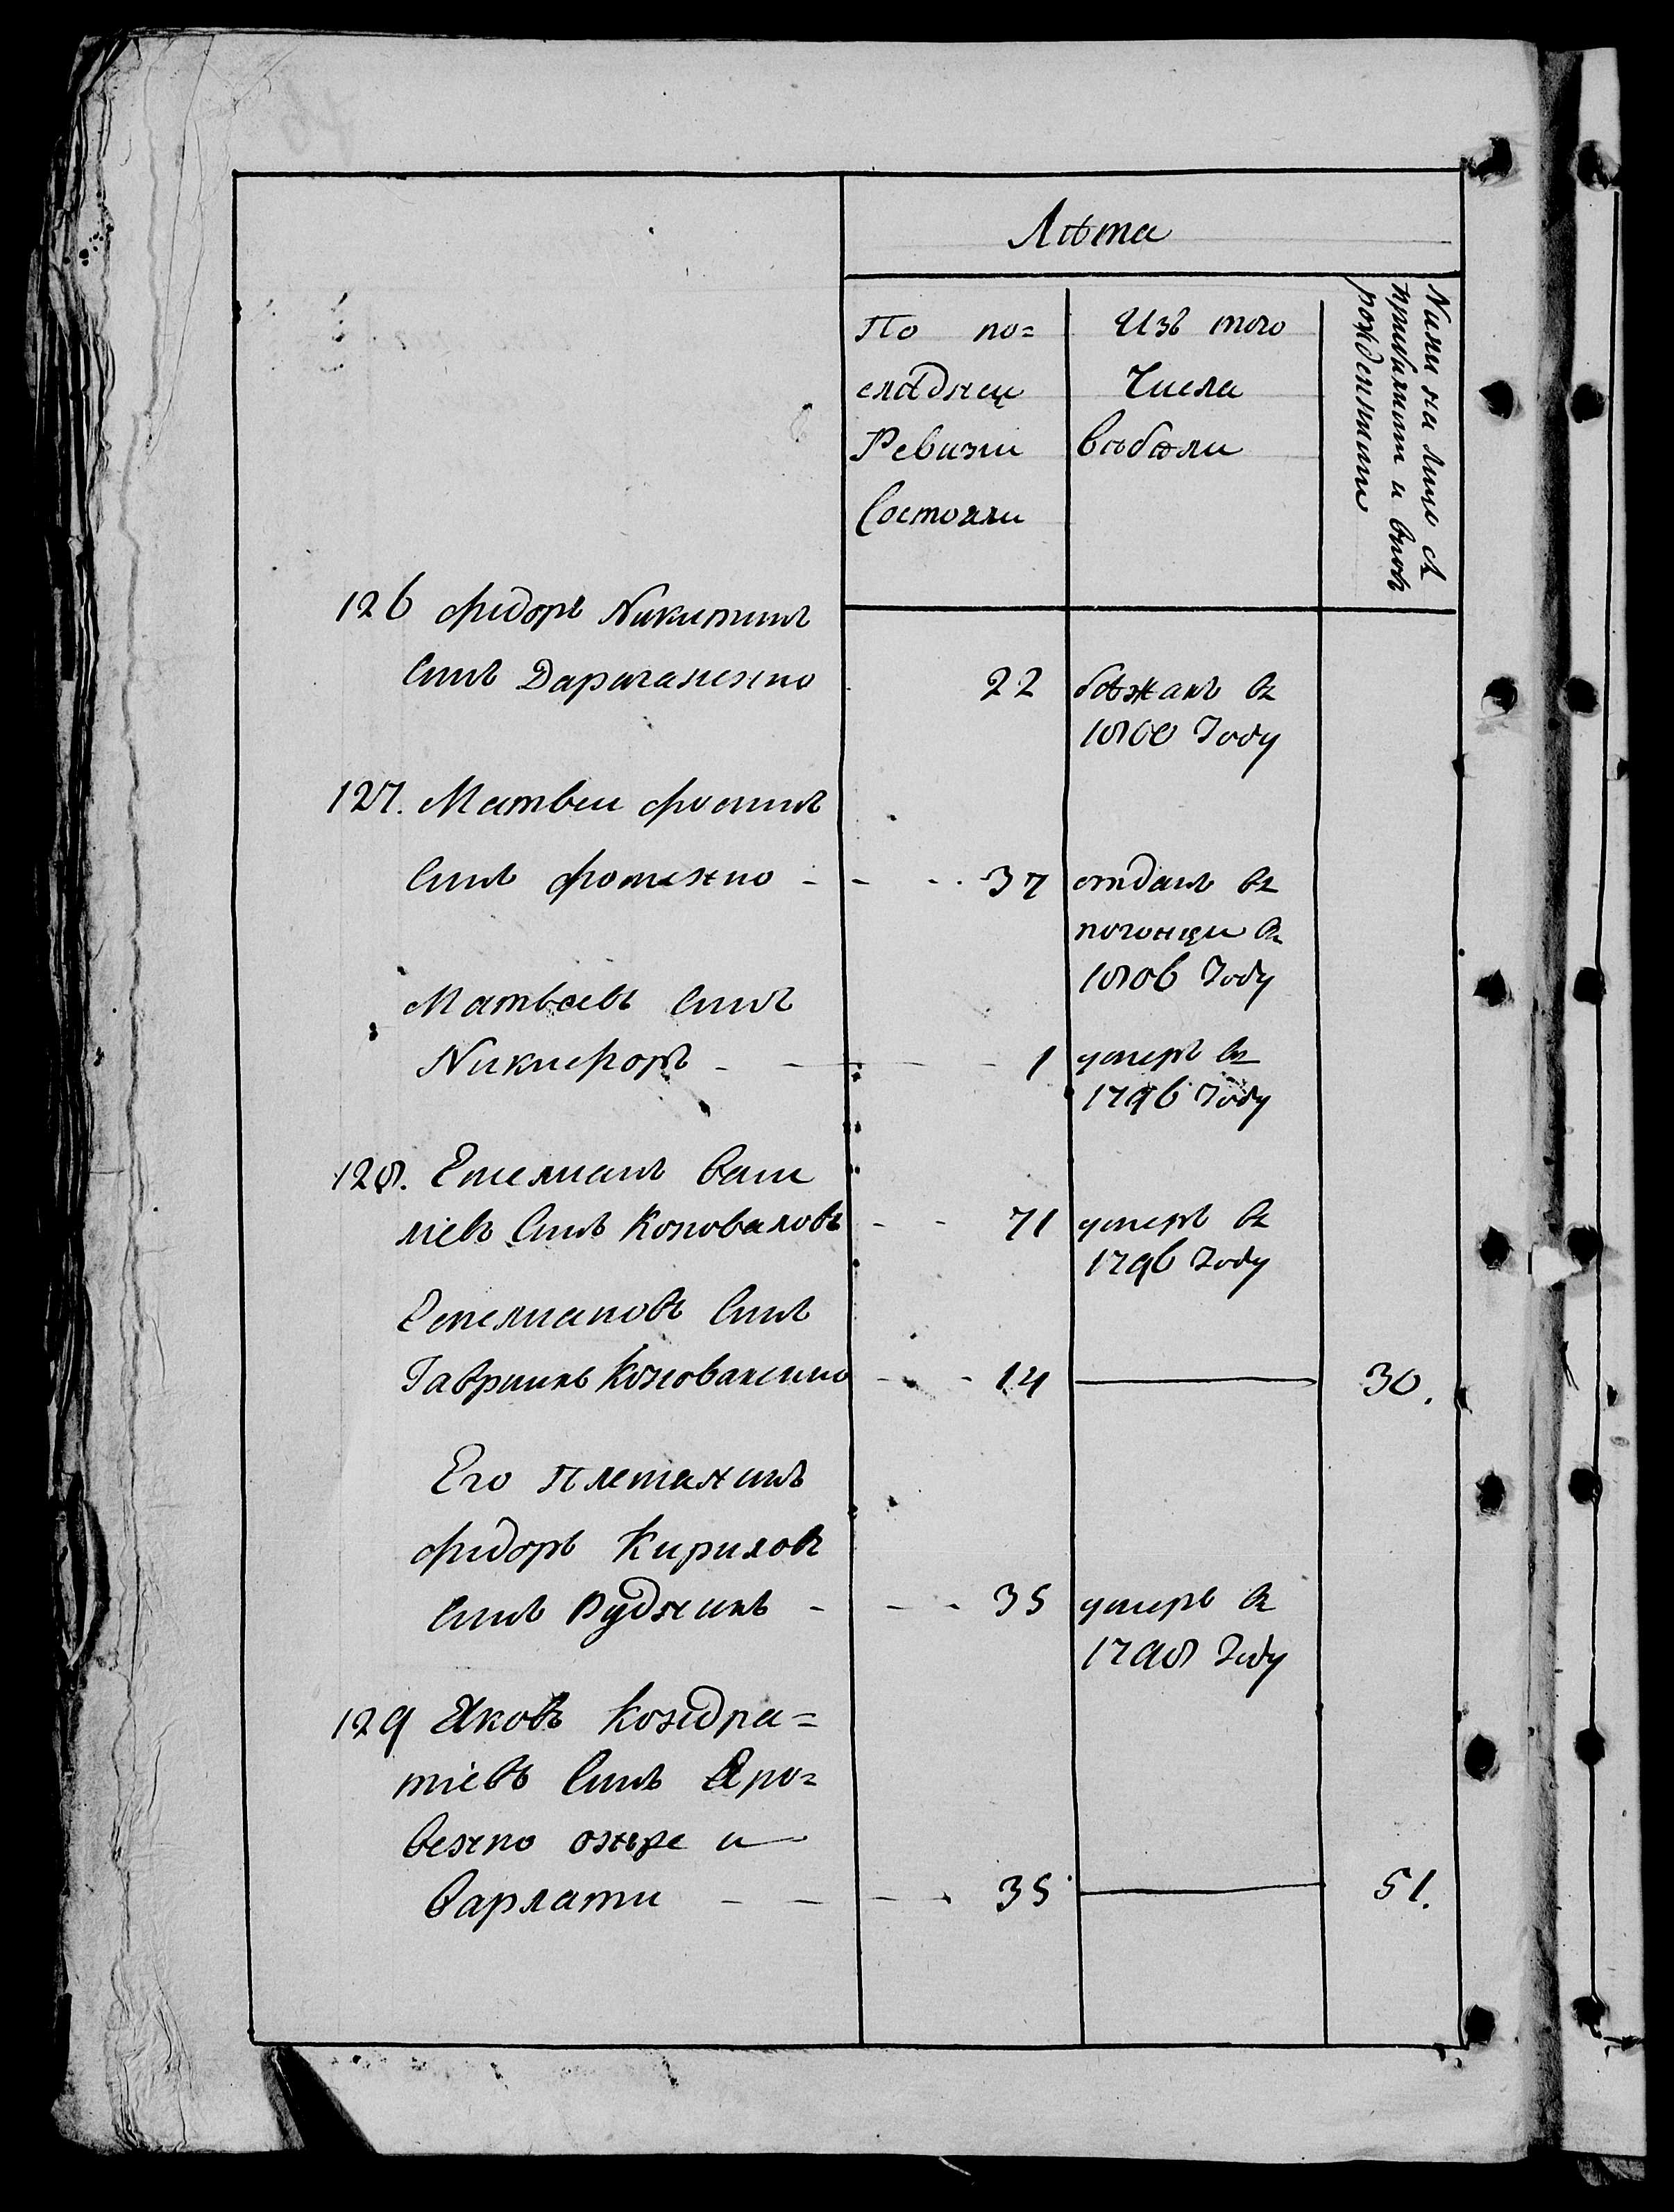 Лѣта
По по=
слѣднеи
Ревизии
Состояли
Изъ того
Числа
выбыли
Ныни на лицо съ
прибылыми и вновь
рожденными
126 Фидоръ Никитинъ
Синъ Дараганенко 22 бѣжалъ въ
1808 Году
127. Матвеи Фоминъ
Синъ Фоменко - - - 37 отданъ въ
погонцы въ
1806 Году
Матвеевъ Синъ
Никифоръ - - - 1 умеръ въ
1796 Году
128. Емелианъ Васи
лиевъ Синъ Коноваловъ - - 71 умеръ въ
1796 Году
Емелиановъ Синъ
Гавриилъ Коноваленко - - 14 — 30.
Его племянникъ
Фидоръ Кириловъ
Синъ Рудникъ - - - 35 умеръ въ
1798 Году
129 Яковъ Кондра=
тіевъ Синъ Яро=
венко онъже и
Варлати - - - - 35 — 51.